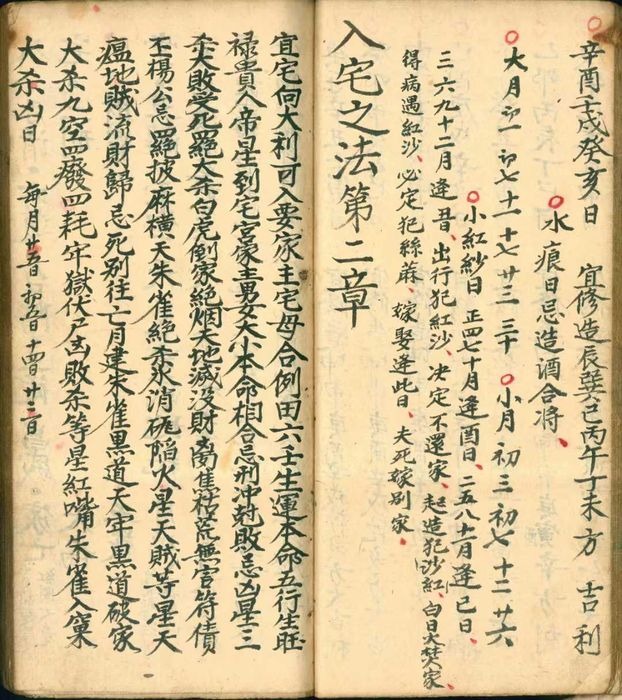 辛酉壬戌癸亥日 宜修造辰巽巳丙午丁未方 吉利
水痕日忌造酒合將
大月初一初七十一十七廿三三十 小月初三初七十二廿六
小紅紗日 正四七十月逢酉日、二五八十一月逢巳日、
三六九十二月逢丑、出行犯紅沙、决定不還家、起造犯紅沙、百日火焚家、
得病遇紅沙、必定犯絲蔴、嫁娶逢此日、夫死嫁别家、
入宅之法第二章
宜宅向大利可入要家主宅母合例田六壬生運本命五行生旺
禄貴人帝星到宅宫家主男女大小本命相合忌刑冲尅敗忌凶星三
杀大敗受死絕大杀白虎倒家絕烟火地滅没財离焦枯荒無官符債
丕楊公忌四絕披麻橫天朱雀絕杀氷消瓦陷火星天賊等星天
瘟地賊流財歸忌死别往亡月建朱雀黑道天牢黑道破家
大杀九空四廢四耗牢獄伏尸凶敗杀等星紅嘴朱雀入窠
大杀凶日 每月廿五日初五日十四日廿三日